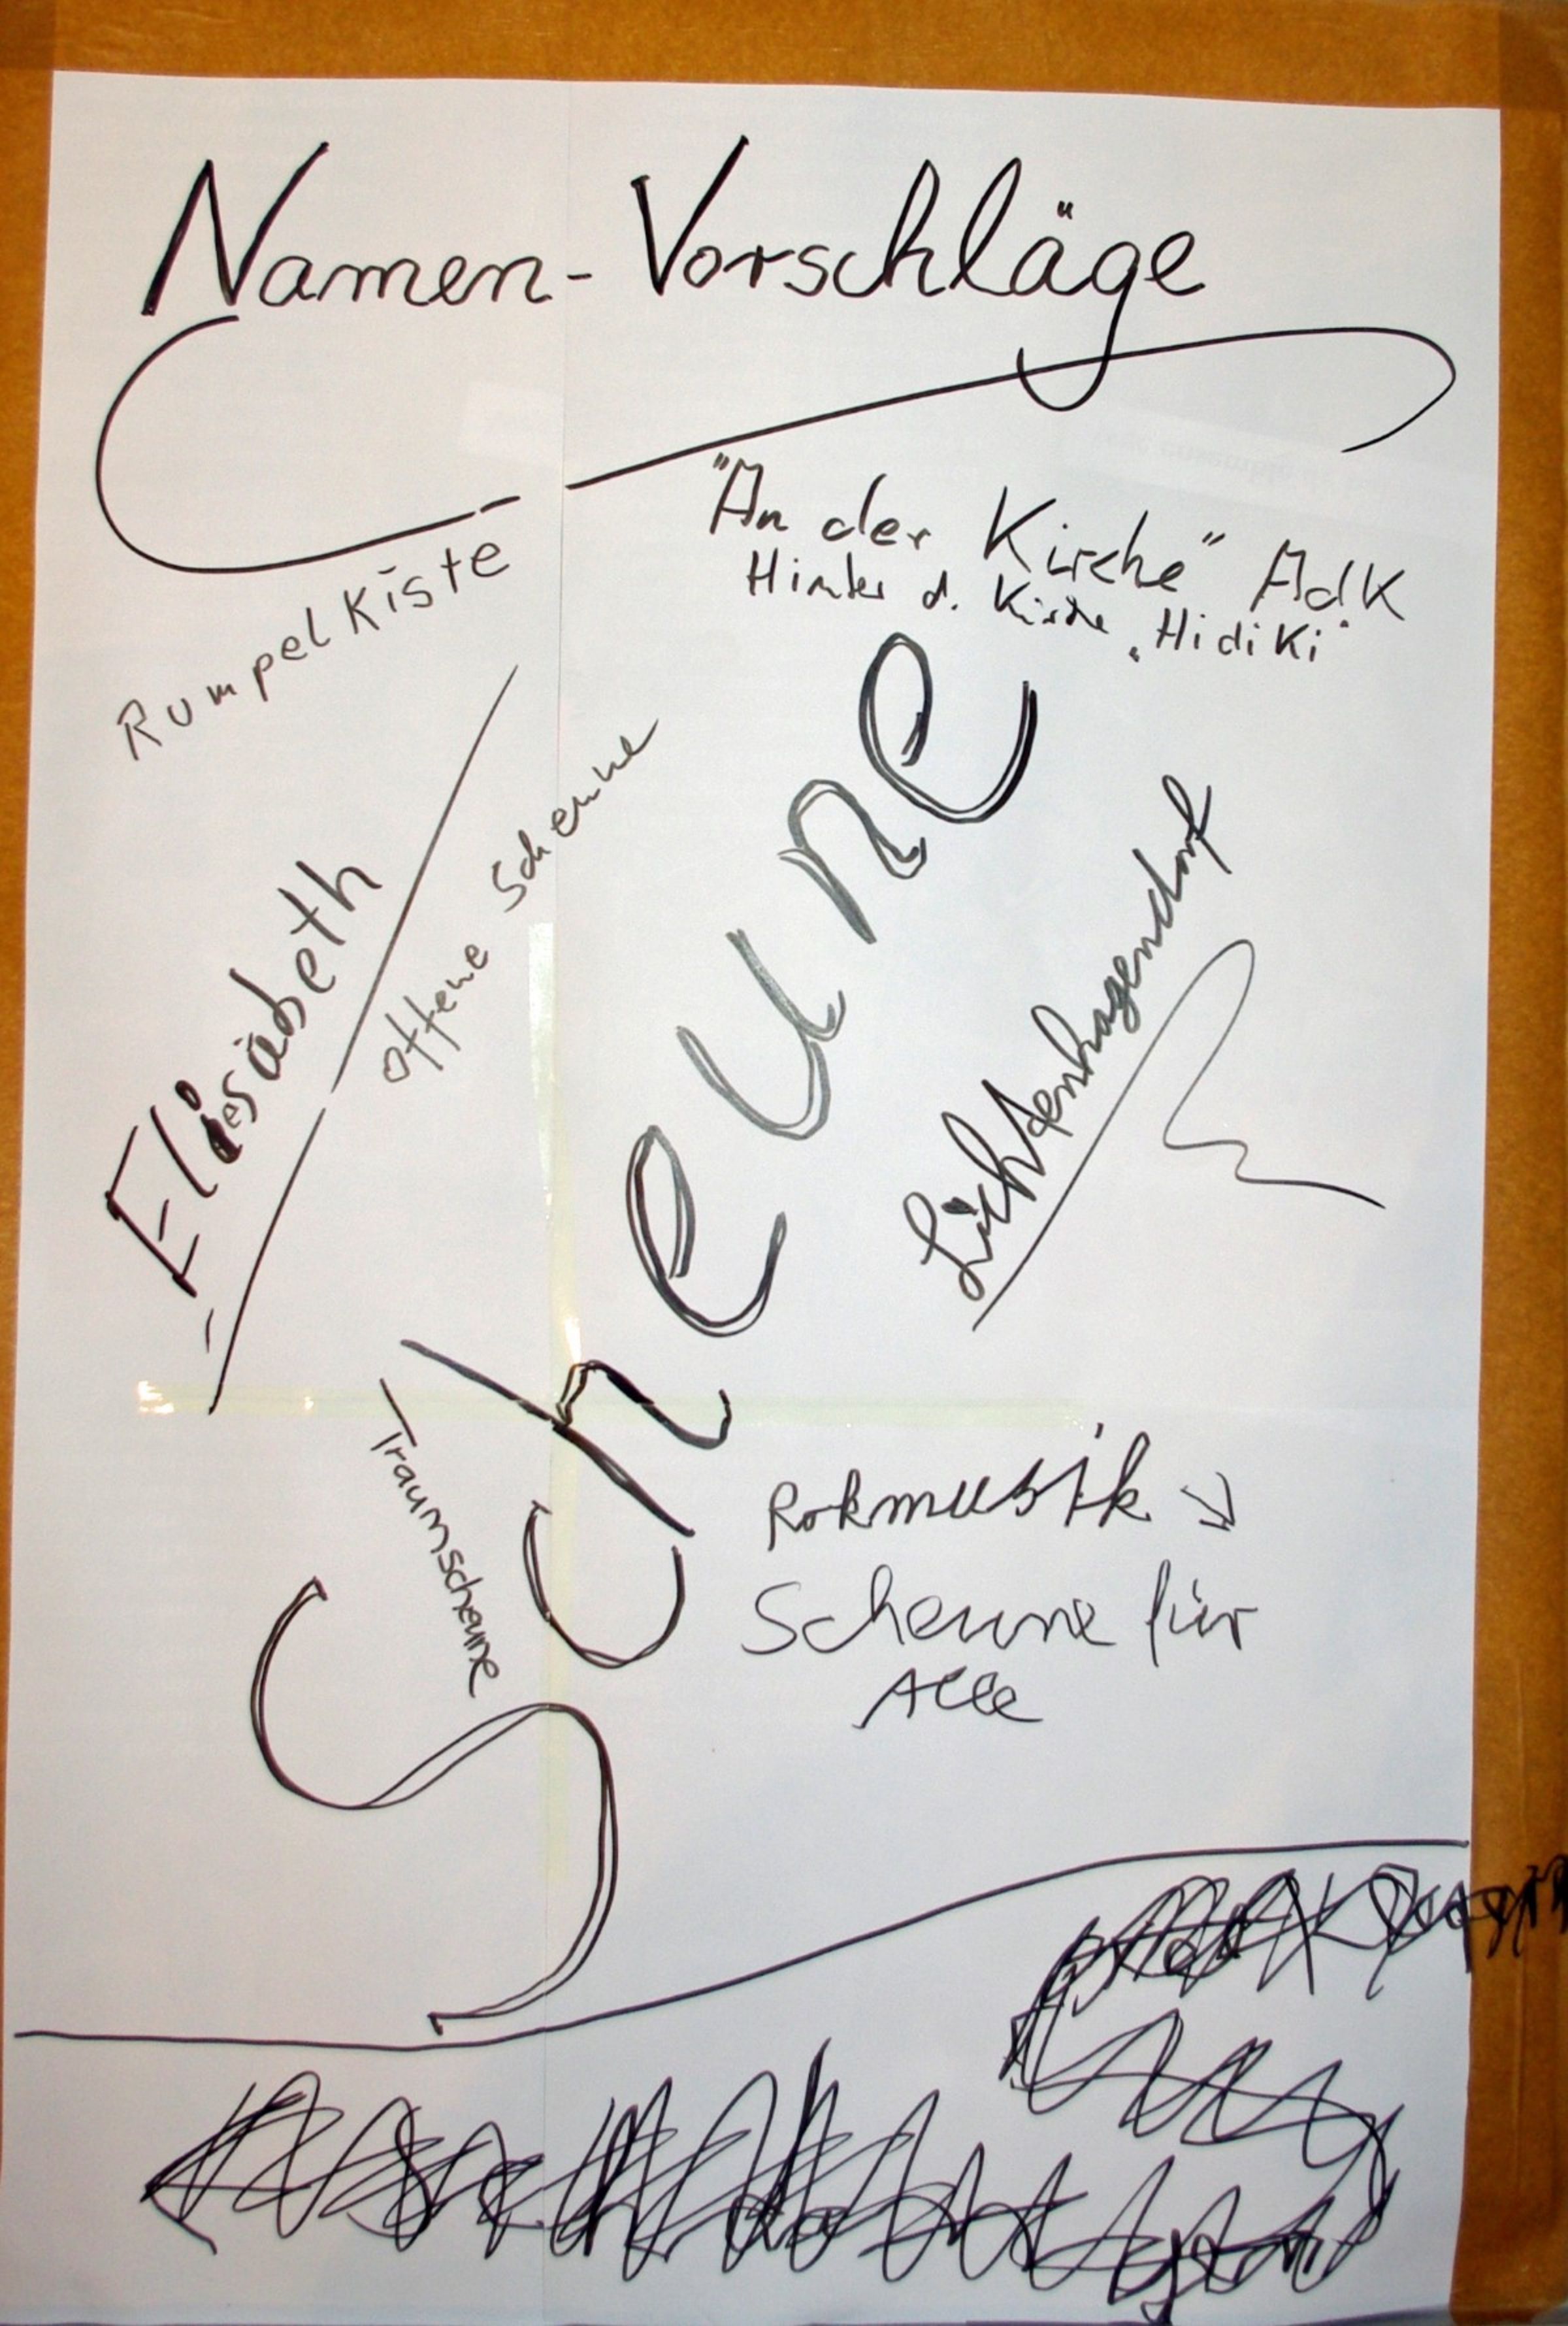 Namen-Vorschläge
"An der Kirche" AdK
Hinter d. Kirche „Hidiki"
Rumpelkiste
Elisabeth
Offene Scheune
Scheune
Lichtenhagendorf
Traumscheune
Rokmusik
Scheune für
Alle